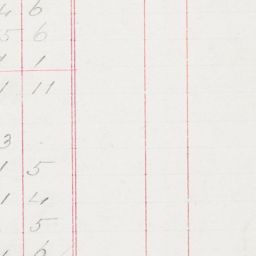 4 6
5 6
1 1
1 11
3
1 5
1 4
5
1 6